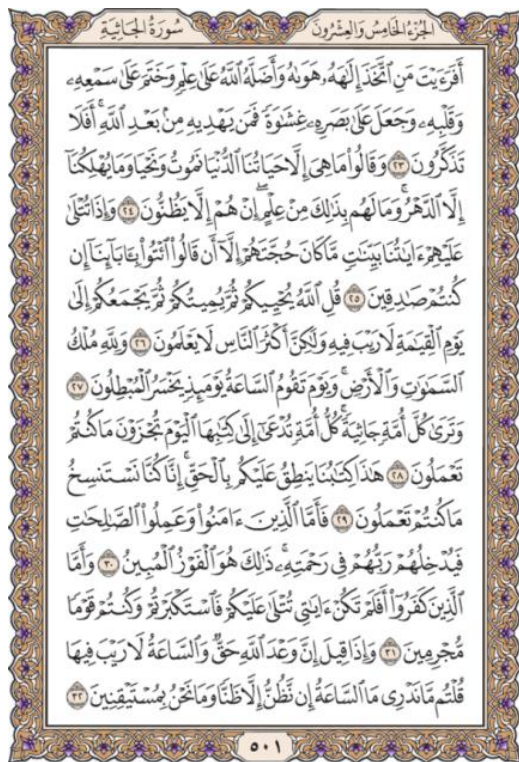 الجزء الخامس والعشرون
سورة الجاثية
أَفَرَءَيْتَ مَنِ ٱتَّخَذَ إِلَٰهَهُۥ هَوَىٰهُ وَأَضَلَّهُ ٱللَّهُ عَلَىٰ عِلْمٍ وَخَتَمَ عَلَىٰ سَمْعِهِۦ
وَقَلْبِهِۦ وَجَعَلَ عَلَىٰ بَصَرِهِۦ غِشَٰوَةً فَمَن يَهْدِيهِ مِنۢ بَعْدِ ٱللَّهِۚ أَفَلَا
تَذَكَّرُونَ ٢٣ وَقَالُوا۟ مَا هِىَ إِلَّا حَيَاتُنَا ٱلدُّنْيَا نَمُوتُ وَنَحْيَا وَمَا يُهْلِكُنَآ
إِلَّا ٱلدَّهْرُۚ وَمَا لَهُم بِذَٰلِكَ مِنْ عِلْمٍۖ إِنْ هُمْ إِلَّا يَظُنُّونَ ٢٤ وَإِذَا تُتْلَىٰ
عَلَيْهِمْ ءَايَٰتُنَا بَيِّنَٰتٍ مَّا كَانَ حُجَّتَهُمْ إِلَّآ أَن قَالُوا۟ ٱئْتُوا۟ بِـَٔابَآئِنَآ إِن
كُنتُمْ صَٰدِقِينَ ٢٥ قُلِ ٱللَّهُ يُحْيِيكُمْ ثُمَّ يُمِيتُكُمْ ثُمَّ يَجْمَعُكُمْ إِلَىٰ
يَوْمِ ٱلْقِيَٰمَةِ لَا رَيْبَ فِيهِ وَلَٰكِنَّ أَكْثَرَ ٱلنَّاسِ لَا يَعْلَمُونَ ٢٦ وَلِلَّهِ مُلْكُ
ٱلسَّمَٰوَٰتِ وَٱلْأَرْضِۚ وَيَوْمَ تَقُومُ ٱلسَّاعَةُ يَوْمَئِذٍ يَخْسَرُ ٱلْمُبْطِلُونَ ٢٧
وَتَرَىٰ كُلَّ أُمَّةٍ جَاثِيَةًۚ كُلُّ أُمَّةٍ تُدْعَىٰٓ إِلَىٰ كِتَٰبِهَا ٱلْيَوْمَ تُجْزَوْنَ مَا كُنتُمْ
تَعْمَلُونَ ٢٨ هَٰذَا كِتَٰبُنَا يَنطِقُ عَلَيْكُم بِٱلْحَقِّۚ إِنَّا كُنَّا نَسْتَنسِخُ
مَا كُنتُمْ تَعْمَلُونَ ٢٩ فَأَمَّا ٱلَّذِينَ ءَامَنُوا۟ وَعَمِلُوا۟ ٱلصَّٰلِحَٰتِ
فَيُدْخِلُهُمْ رَبُّهُمْ فِى رَحْمَتِهِۦۚ ذَٰلِكَ هُوَ ٱلْفَوْزُ ٱلْمُبِينُ ٣٠ وَأَمَّا
ٱلَّذِينَ كَفَرُوٓا۟ أَفَلَمْ تَكُنْ ءَايَٰتِى تُتْلَىٰ عَلَيْكُمْ فَٱسْتَكْبَرْتُمْ وَكُنتُمْ قَوْمًا
مُّجْرِمِينَ ٣١ وَإِذَا قِيلَ إِنَّ وَعْدَ ٱللَّهِ حَقٌّ وَٱلسَّاعَةُ لَا رَيْبَ فِيهَا
قُلْتُم مَّا نَدْرِى مَا ٱلسَّاعَةُ إِن نَّظُنُّ إِلَّا ظَنًّا وَمَا نَحْنُ بِمُسْتَيْقِنِينَ ٣٢
٥٠١